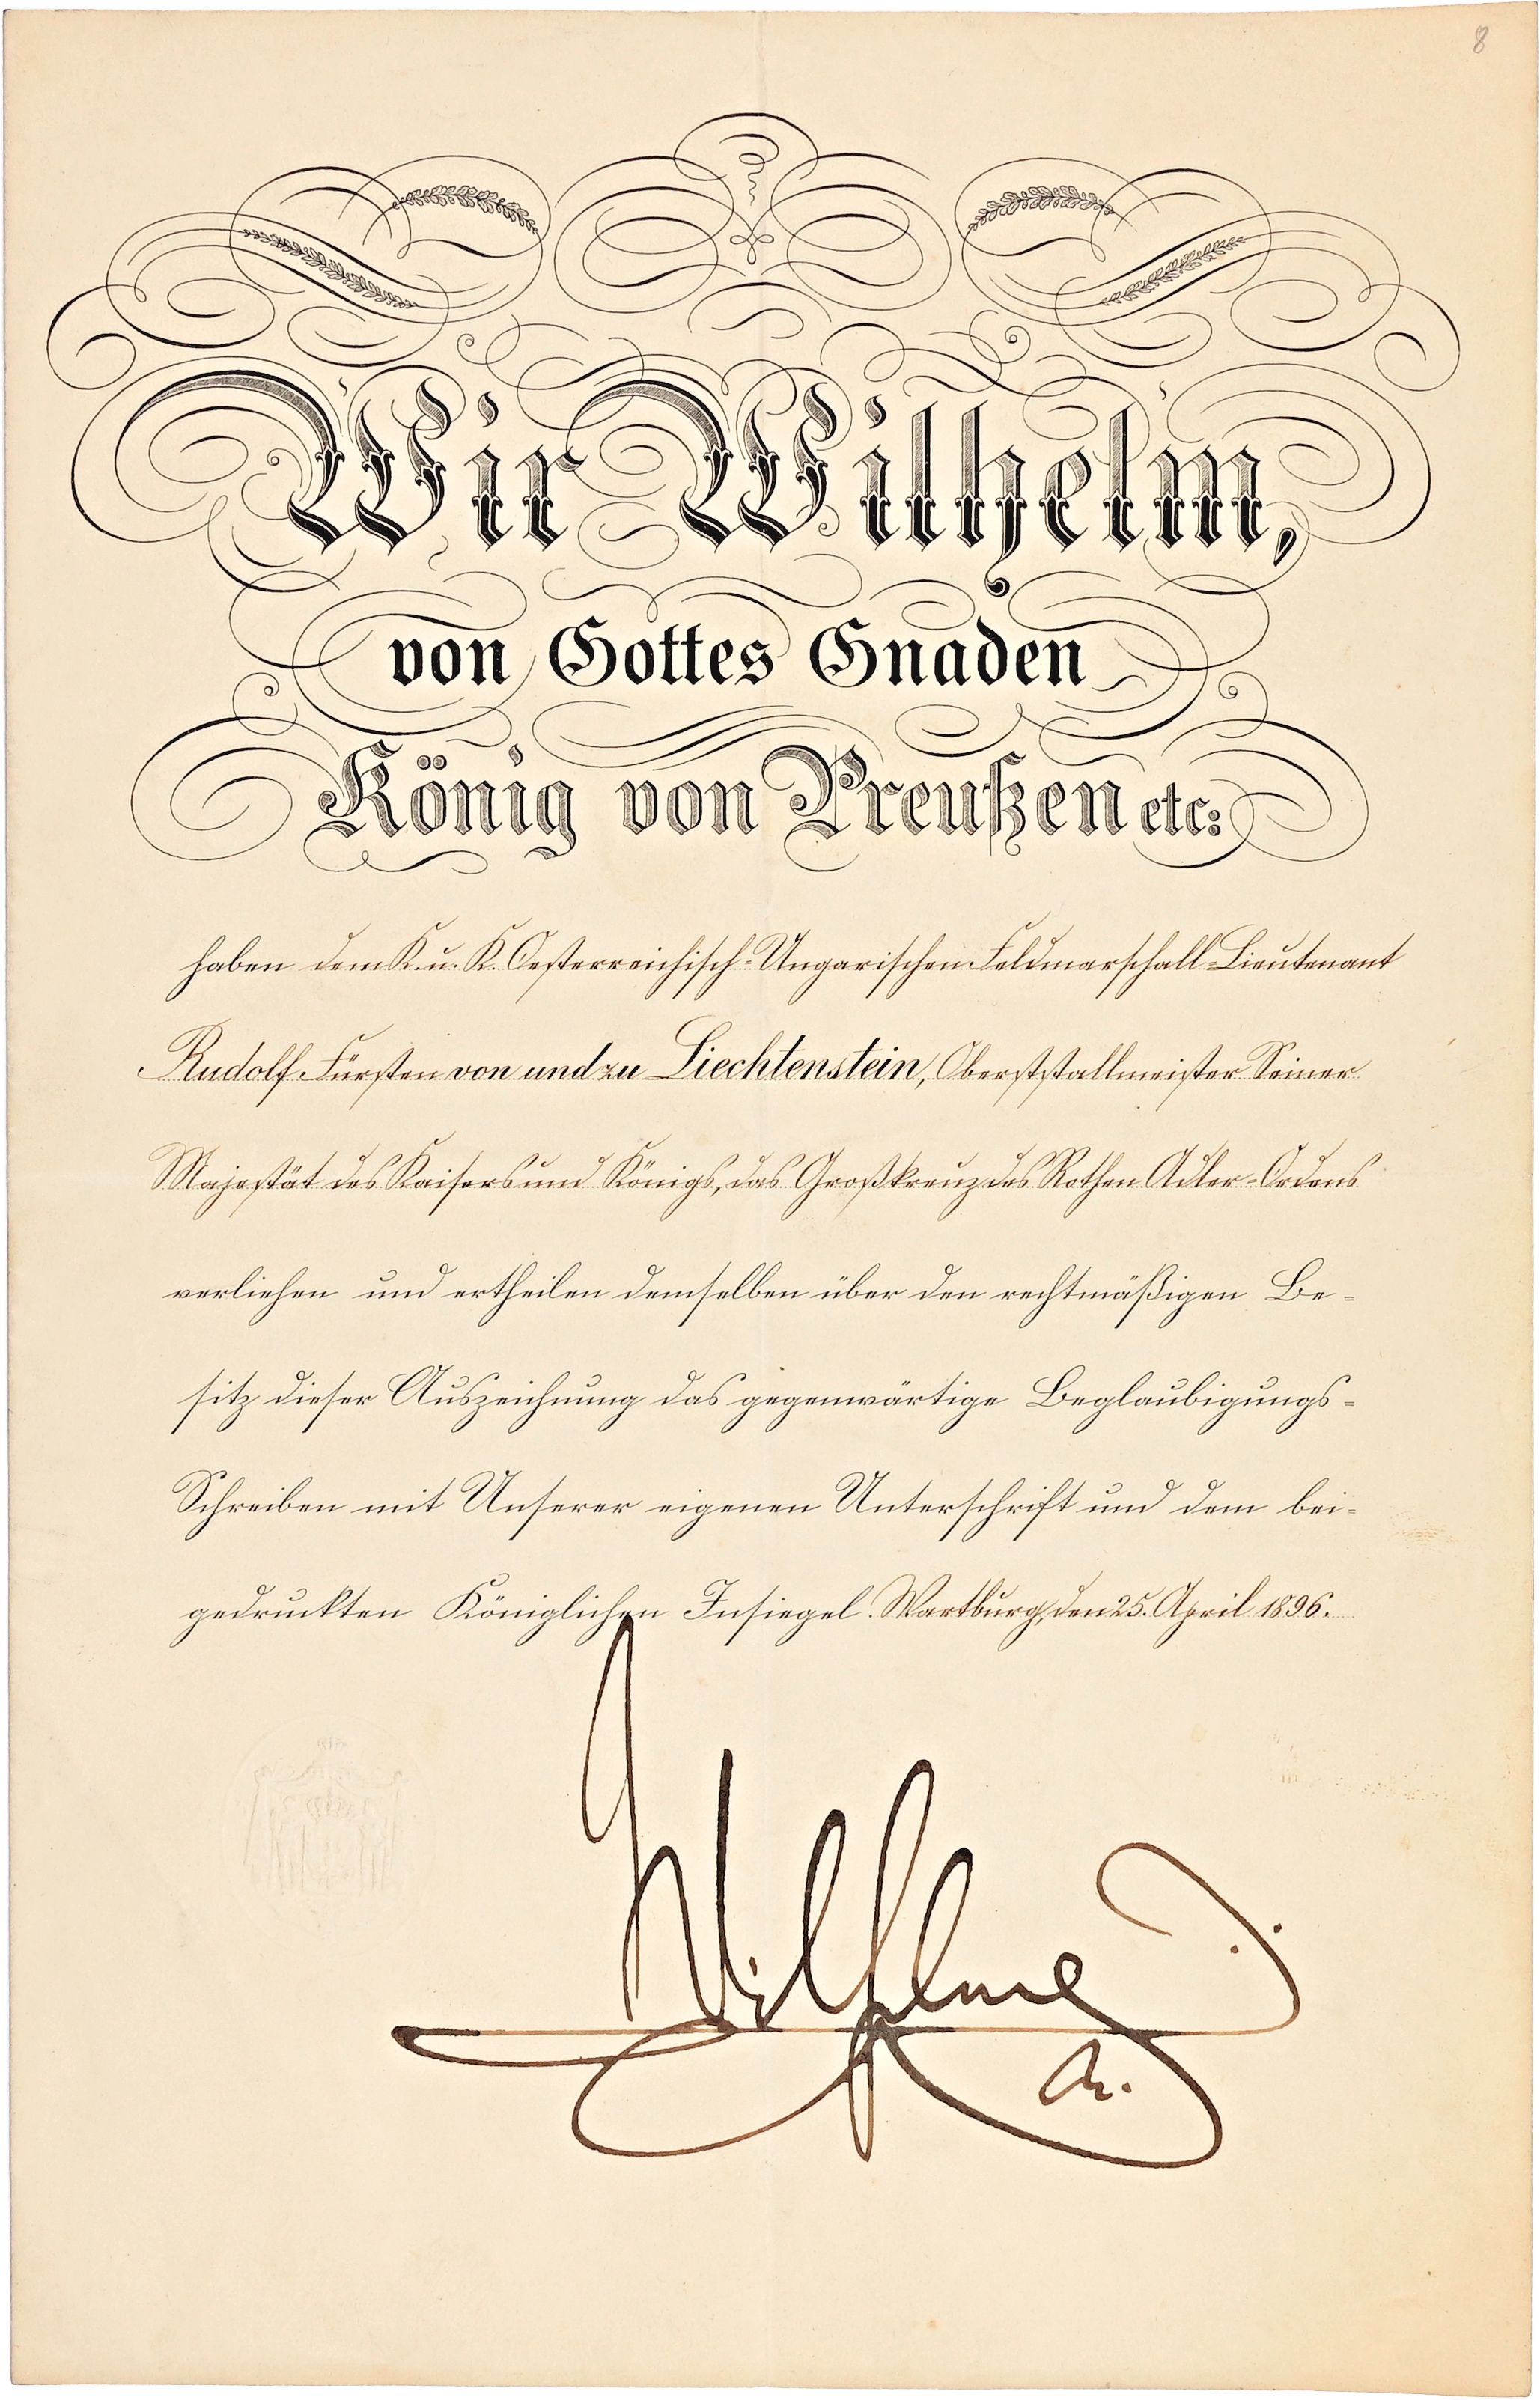 8
Wir Wilhelm,
von Gottes Gnaden
König von Preußen etc:
haben dem K. u. K. Oesterreichisch-Ungarischen Feldmarschall-Lieutenant
Rudolf Fürsten von und zu Liechtenstein, Oberststallmeister Seiner
Majestät des Kaisers und Königs, das Großkreuz des Rothen Adler-Ordens
verliehen und ertheilen demselben über den rechtmäßigen Be-
sitz dieser Auszeichnung das gegenwärtige Beglaubigungs-
Schreiben mit Unserer eigenen Unterschrift und dem bei-
gedruckten Königlichen Insiegel. Wartburg, den 25. April 1896.
Wilhelm
R.